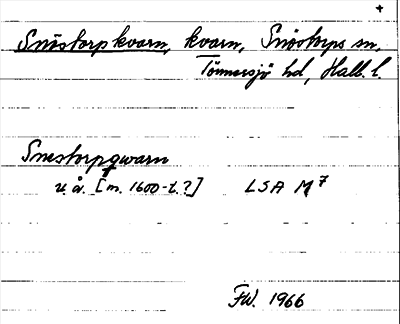 +
Snöstorpkvarn, kvarn, Snöstorps sn,
Tönnersjö hd, Hall. l.
Snestorpqwarn
u. å. [m. 1600-t.?] LSA M7
FW. 1966